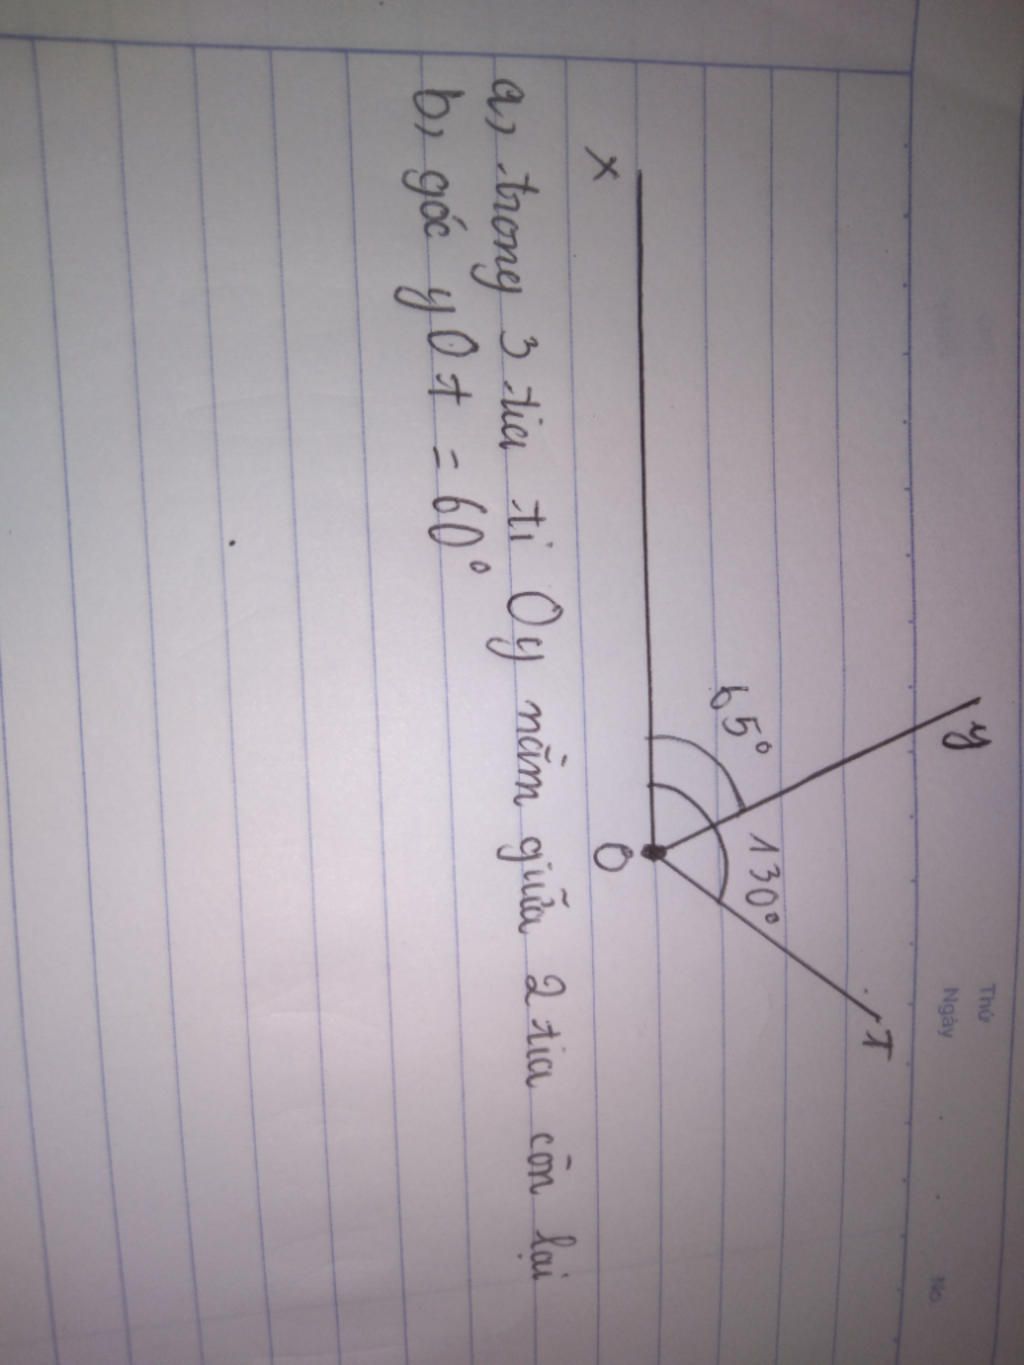 Thứ
Ngày
No.
y
T
65°
130°
x
O
a, trong 3 tia ti Oy nằm giữa 2 tia còn lại
b, góc yOt = 60°